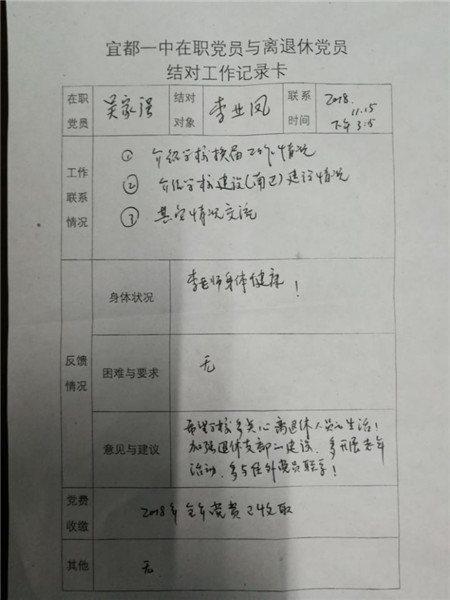 宜都一中在职党员与离退休党员
结对工作记录卡
在职党员 吴家强 结对对象 李业凤 联系时间 2018.11.15 下午3:15
工作联系情况
① 介绍学校换届工作情况
② 介绍学校建设(南区)建设情况
③ 其它情况交流
反馈情况
身体状况 李老师身体健康!
困难与要求 无
意见与建议
希望学校多关心离退休人员的生活!
加强退休支部的建设、多开展老年
活动、多与在外党员联系!
党费收缴 2018年全年党费已收取
其他 无